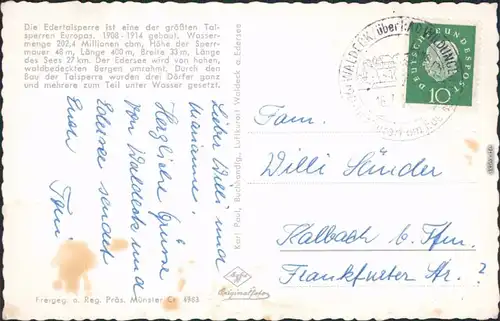 Die Edertalsperre ist eine der größten Tal-
sperren Europas. 1908 - 1914 gebaut. Wasser-
menge 202,4 Millionen cbm, Höhe der Sperr-
mauer 48 m, Länge 400 m, Breite 33 m, Länge
des Sees 27 km. Der Edersee wird von hohen,
waldbedeckten Bergen umrahmt. Durch den
Bau der Talsperre wurden drei Dörfer ganz
und mehrere zum Teil unter Wasser gesetzt.
Lieber Willi und
Marianne!
Herzliche Grüsse
von Waldeck und
Edersee sendet
Euch Toni
Freigeg. d. Reg. Präs. Münster Cr 4983
Karl Paul, Buchhandlg., Luftkurort Waldeck a. Edersee
Agfa
Originalfoto
WALDECK über BAD WILDUNGEN
DEUTSCHE BUNDESPOST
10
Fam.
Willi Sünder
Kalbach b. Ffm.
Frankfurter Str. 2